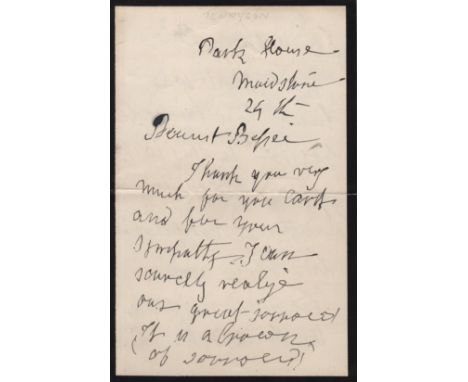 Park House
Maidstone
29th
Dearest Bessie
Thank you very
much for your card
and for your
sympathy I can
scarcely realize
our great sorrow!
(It is a crown
of sorrow!)